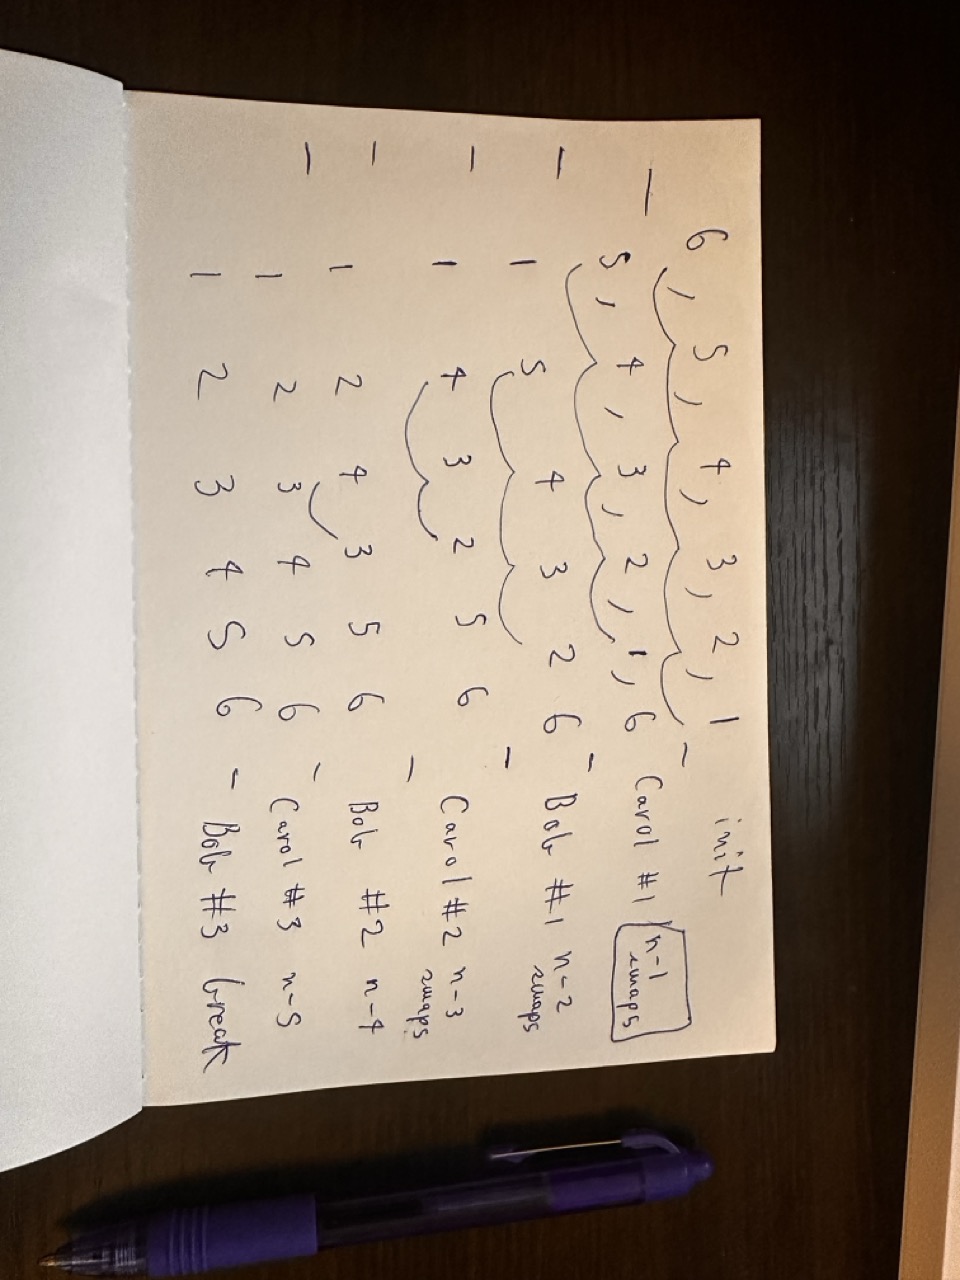 6, 5, 4, 3, 2, 1 init
— 5, 4, 3, 2, 1, 6 — Carol #1 n-1 swaps
— 1 5 4 3 2 6 — Bob #1 n-2 swaps
— 1 4 3 2 5 6 — Carol #2 n-3 swaps
— 1 2 4 3 5 6 — Bob #2 n-4
— 1 2 3 4 5 6 — Carol #3 n-5
1 2 3 4 5 6 — Bob #3 break